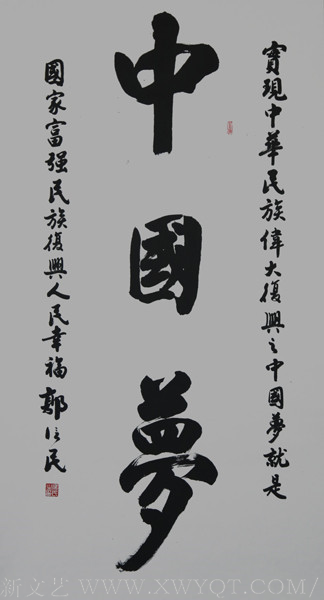 中國夢
實現中華民族偉大復興之中國夢就是
國家富强民族復興人民幸福 鄭信民
新文艺 WWW.XWYQT.COM